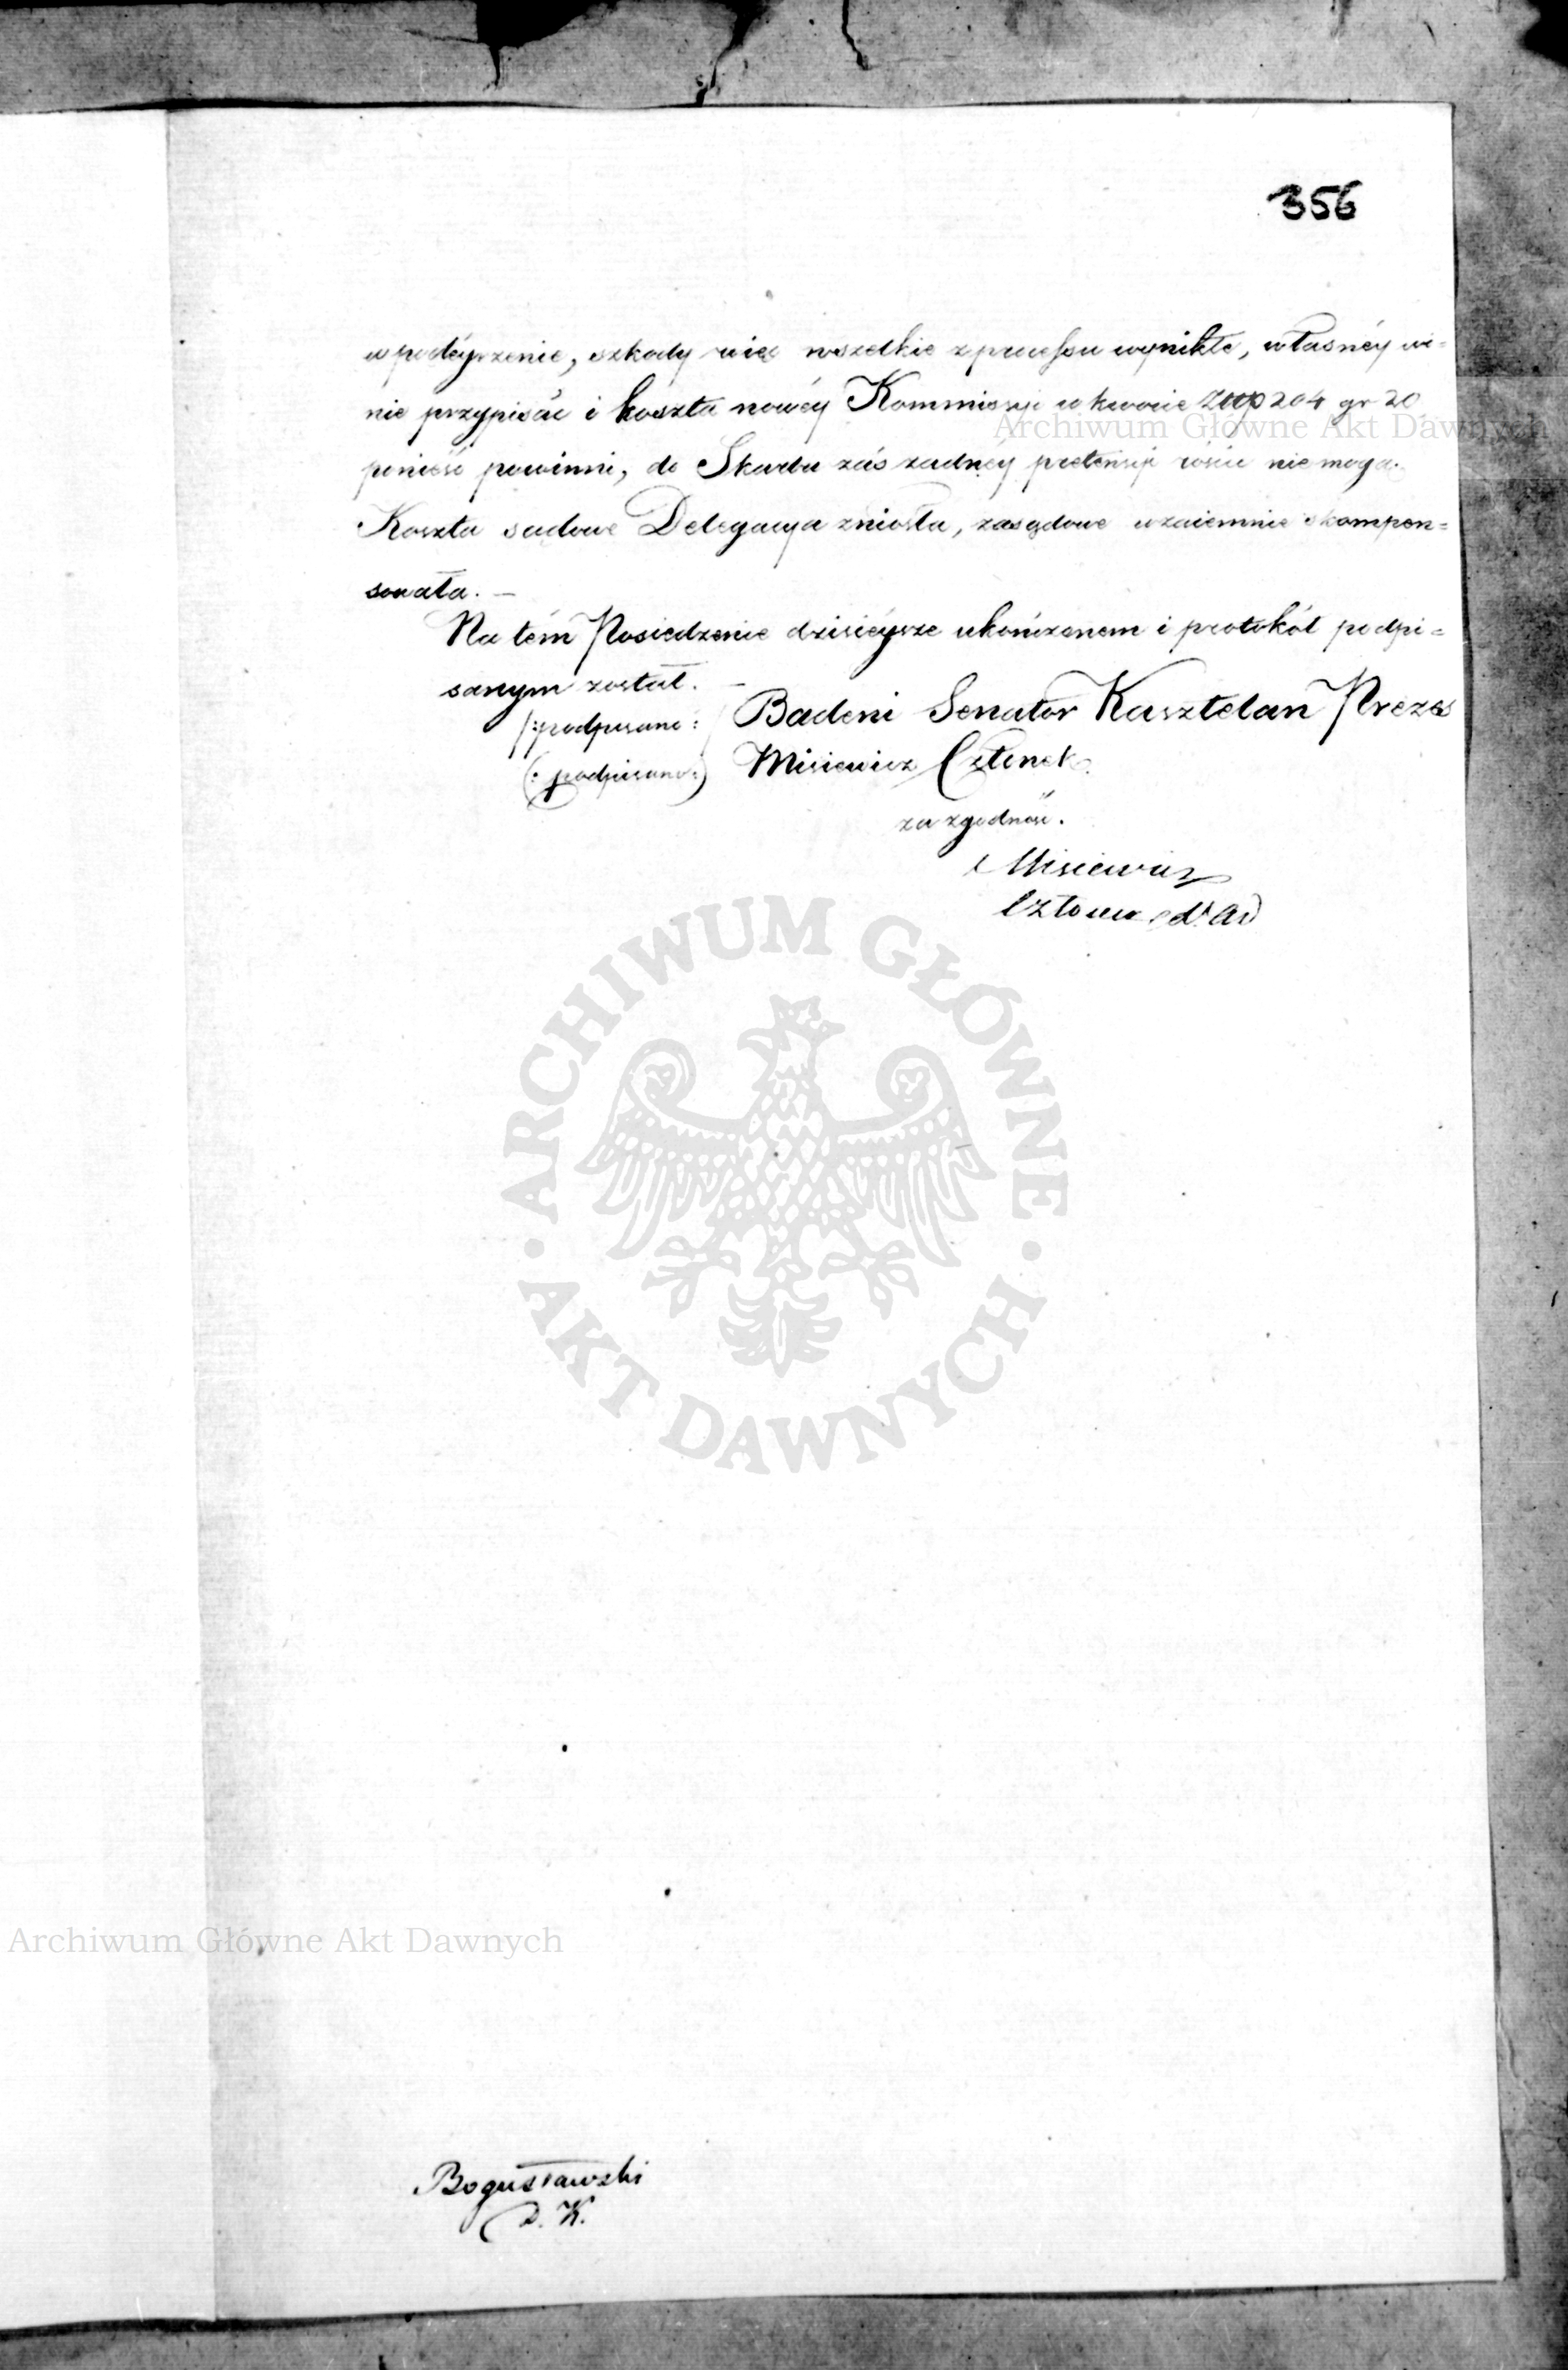 356
w podéyrzenie, szkody więc wszelkie z processu wynikłe, własnéy wi=
nie przypisać i koszta nowéy Kommissyi w kwocie Złp 204 gr 20
Archiwum Główne Akt Dawnych
ponieść powinni, do Skarbu zaś żadnéy pretensyi rościć nie mogą.
Koszta sądowe Delegacya zniosła, zasądowe wzaiemnie skompen=
sowała. —
Na tém Posiedzenie dzisiéysze ukończonem i protokół podpi=
sanym został. —
/:podpisano:/ Badeni Senator Kasztelan Prezes
(:podpisano:) Misiewicz Członek
za zgodność.
Misiewicz
Członek
ARCHIWUM GŁÓWNE
AKT DAWNYCH
Archiwum Główne Akt Dawnych
Bogusławski
D. K.